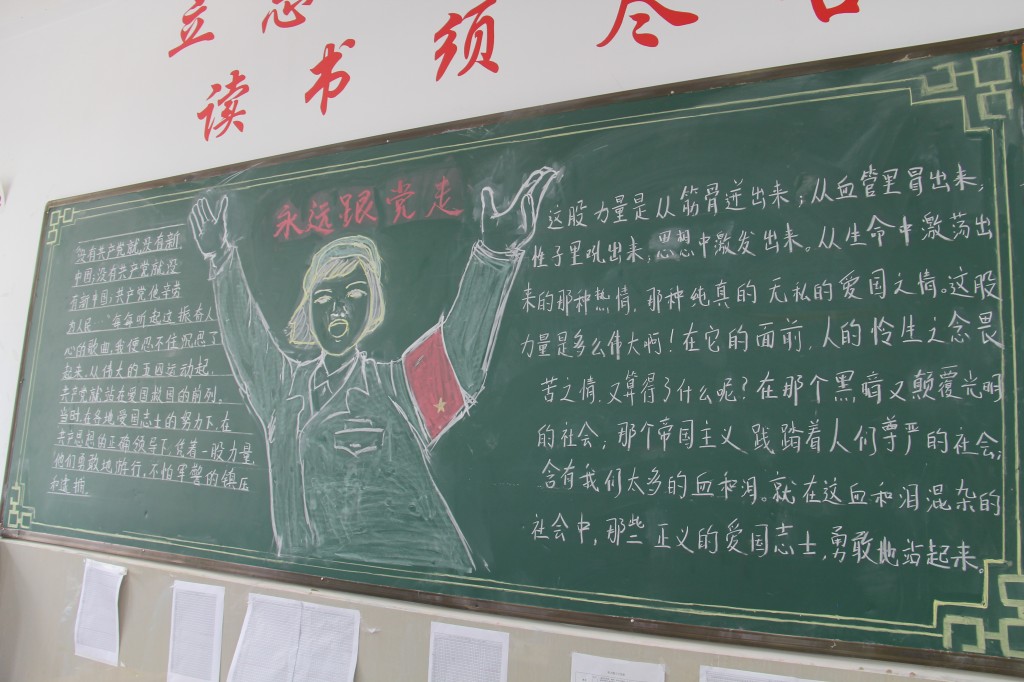 立志
读书须尽
永远跟党走
“没有共产党就没有新
中国，没有共产党就没
有新中国，共产党他辛劳
为人民…”每每听起这振奋人
心的歌曲，我便忍不住沉思了
起来，从伟大的五四运动起，
共产党就站在爱国救国的前列。
当时，在各地爱国志士的努力下，在
共产思想的正确领导下，凭着一股力量，
他们勇敢地前行，不怕军警的镇压
和逮捕，
这股力量是从筋骨迸出来；从血管里冒出来，
性子里吼出来，思想中激发出来。从生命中激荡出
来的那种热情，那种纯真的无私的爱国之情。这股
力量是多么伟大啊！在它的面前，人的怜生之念畏
苦之情，又算得了什么呢？在那个黑暗又颠覆光明
的社会；那个帝国主义践踏着人们尊严的社会；
含有我们太多的血和泪。就在这血和泪混杂的
社会中，那些正义的爱国志士，勇敢地站起来。